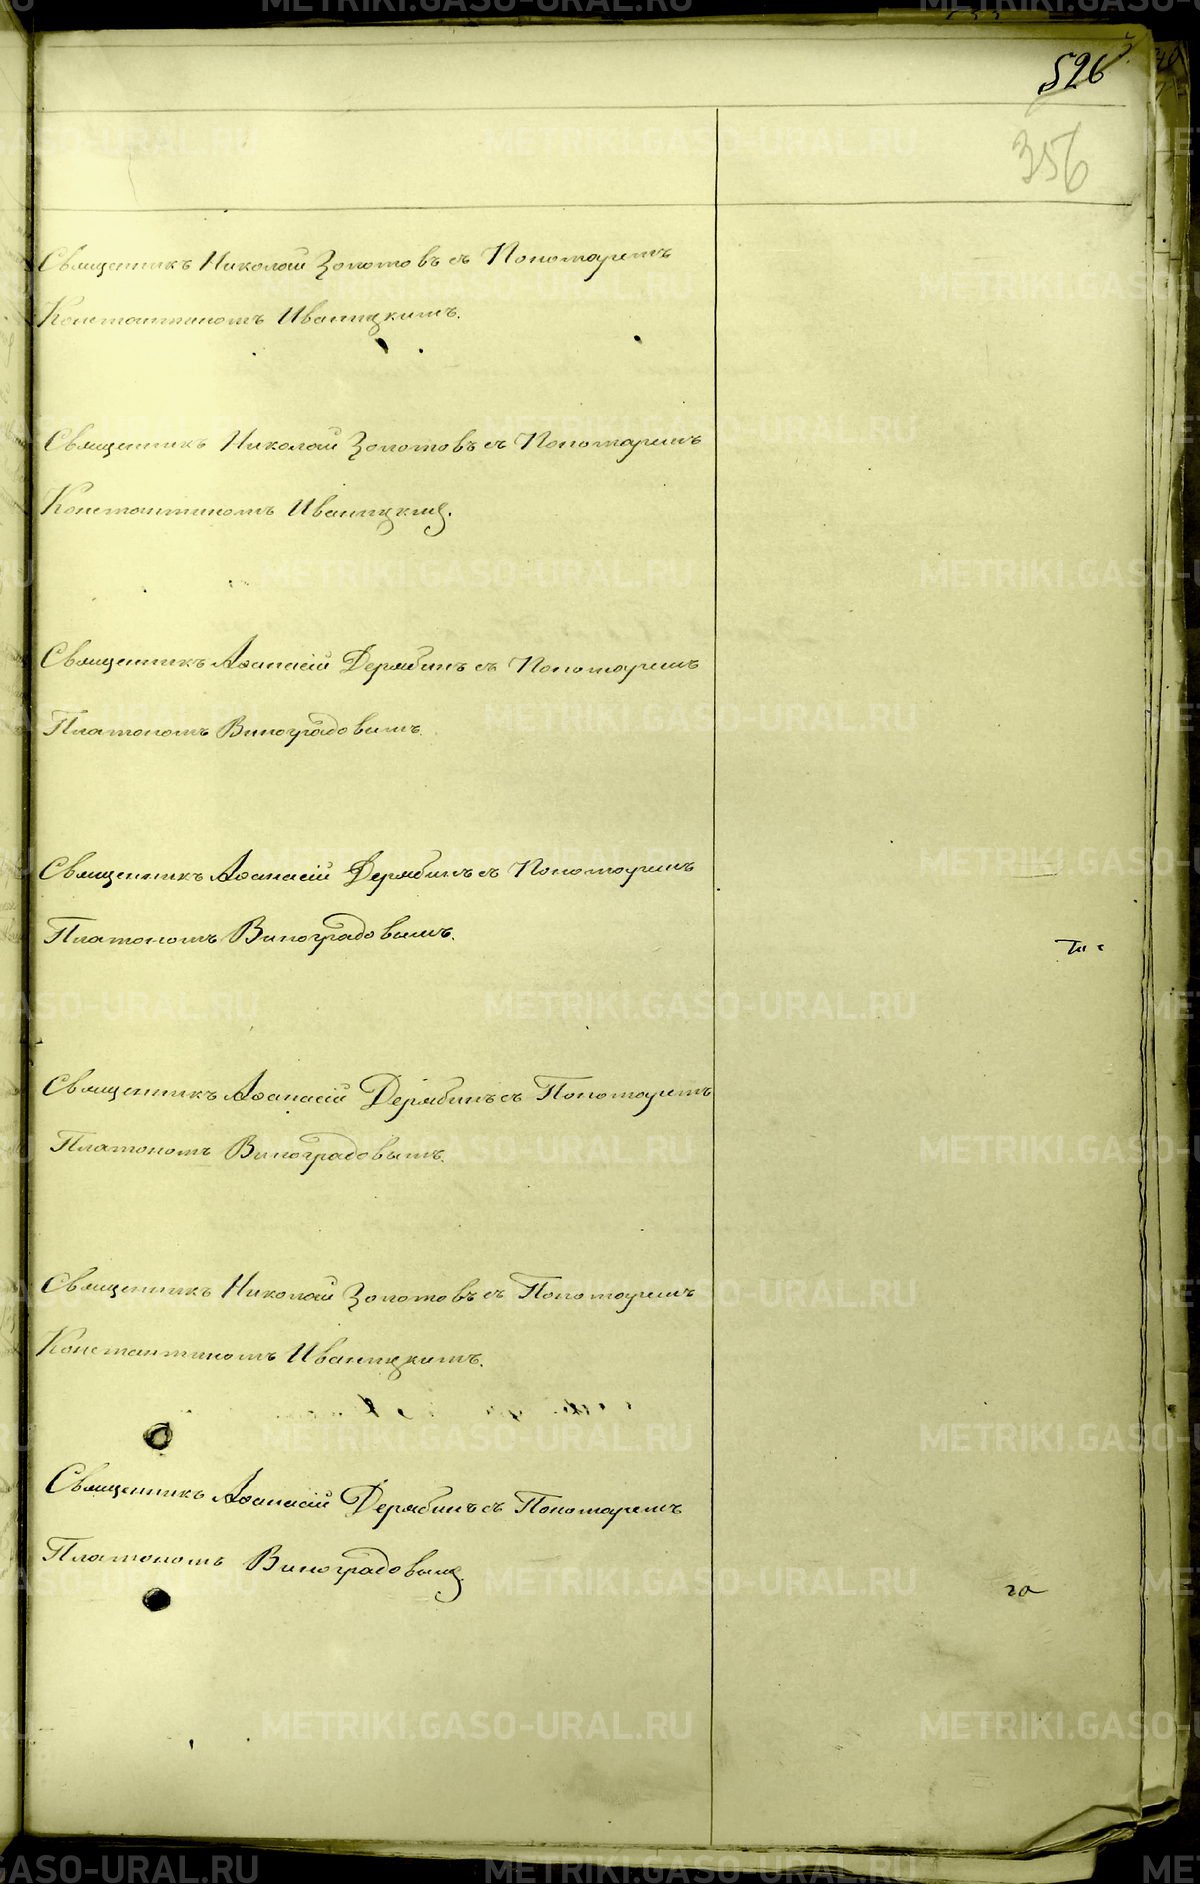 526
356
Священникъ Николай Золотовъ съ Пономаремъ
Константиномъ Иваницкимъ.
Священникъ Николай Золотовъ съ Пономаремъ
Константиномъ Иваницкимъ.
Священникъ Аѳанасій Дерябинъ съ Пономаремъ
Платономъ Виноградовымъ.
Священникъ Аѳанасій Дерябинъ съ Пономаремъ
Платономъ Виноградовымъ.
Священникъ Аѳанасій Дерябинъ съ Пономаремъ
Платономъ Виноградовымъ.
Священникъ Николай Золотовъ съ Пономаремъ
Константиномъ Иваницкимъ.
Священникъ Аѳанасій Дерябинъ съ Пономаремъ
Платономъ Виноградовымъ.
METRIKI.GASO-URAL.RU